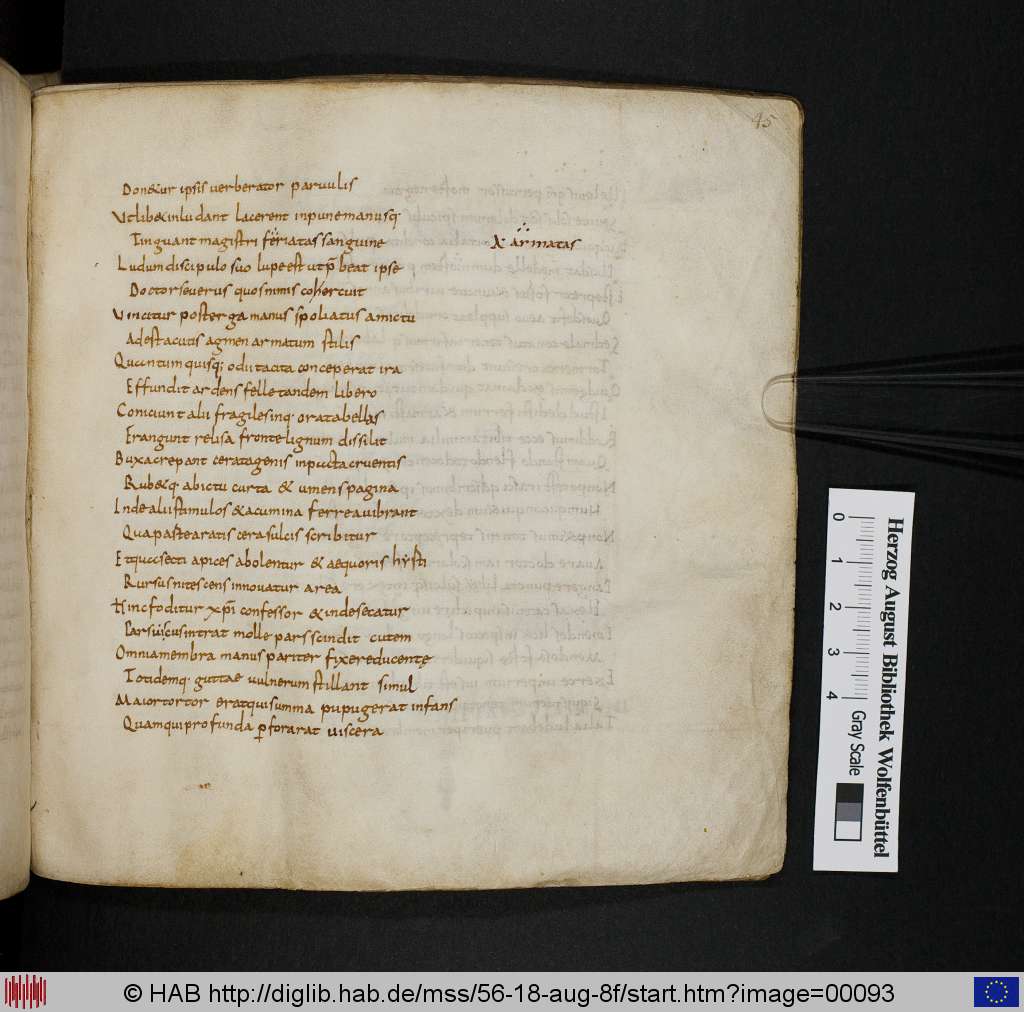 45
Don&ur ipsis verberator parvulis
Vt lib& inludant lacerent inpune manusq·
Tinguant magistri feriatas sanguine
λ armatas
Ludum discipulo suo lupe est ut p̄beat ipse
Doctor severus quos nimis cohercuit
Vincitur post terga manus spoliatus amictu
Adest acutis agmen armatum stilis
Quantum quisq; odii tacita conceperat ira
Effundit ardens felle tandem libero
Coniciunt alii fragiles inq· ora tabellas
Frangunt relisa fronte lignum dissilit
Buxa crepant cerata genis inpacta cruentis
Rub&q· ab ictu curta & umens pagina
Inde alii stimulos & acumina ferrea vibrant
Qua parte aratis cera sulcis scribitur
Et qua secti apices abolentur & aequoris hyrsti
Rursus nitescens innovatur area
Hinc foditur xp̄i confessor & inde secatur
Pars viscus intrat molle pars scindit cutem
Omnia membra manus pariter fixere ducentę
Totidemq· guttae vulnerum stillant simul
Maior tortor erat qui summa pupugerat infans
Quam qui profunda ꝑforarat viscera
0 1 2 3 4
Gray Scale
Herzog August Bibliothek Wolfenbüttel
© HAB http://diglib.hab.de/mss/56-18-aug-8f/start.htm?image=00093